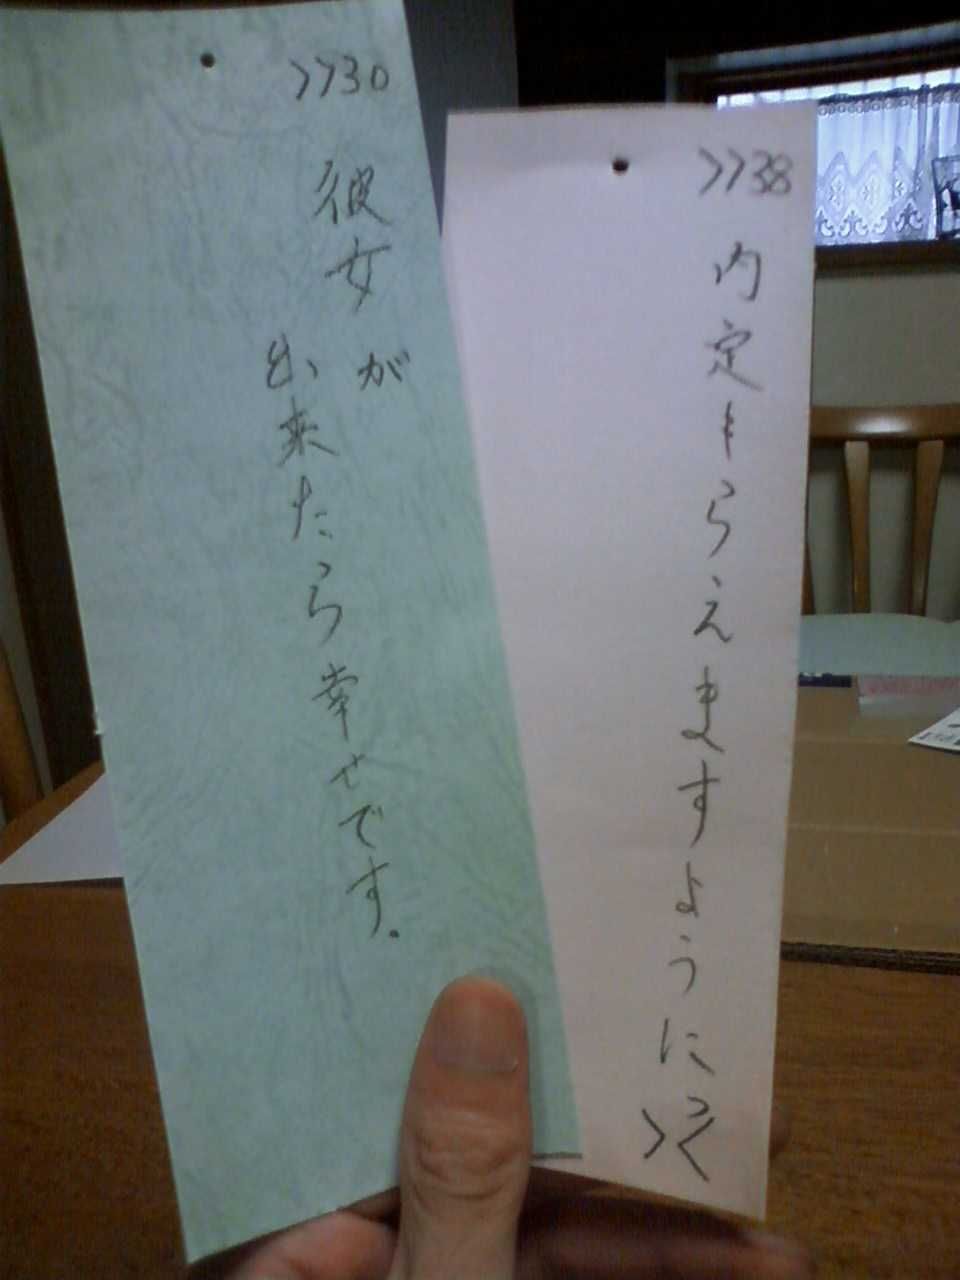 >>30
彼女が
出来たら幸せです.
>>38
内定もらえますように